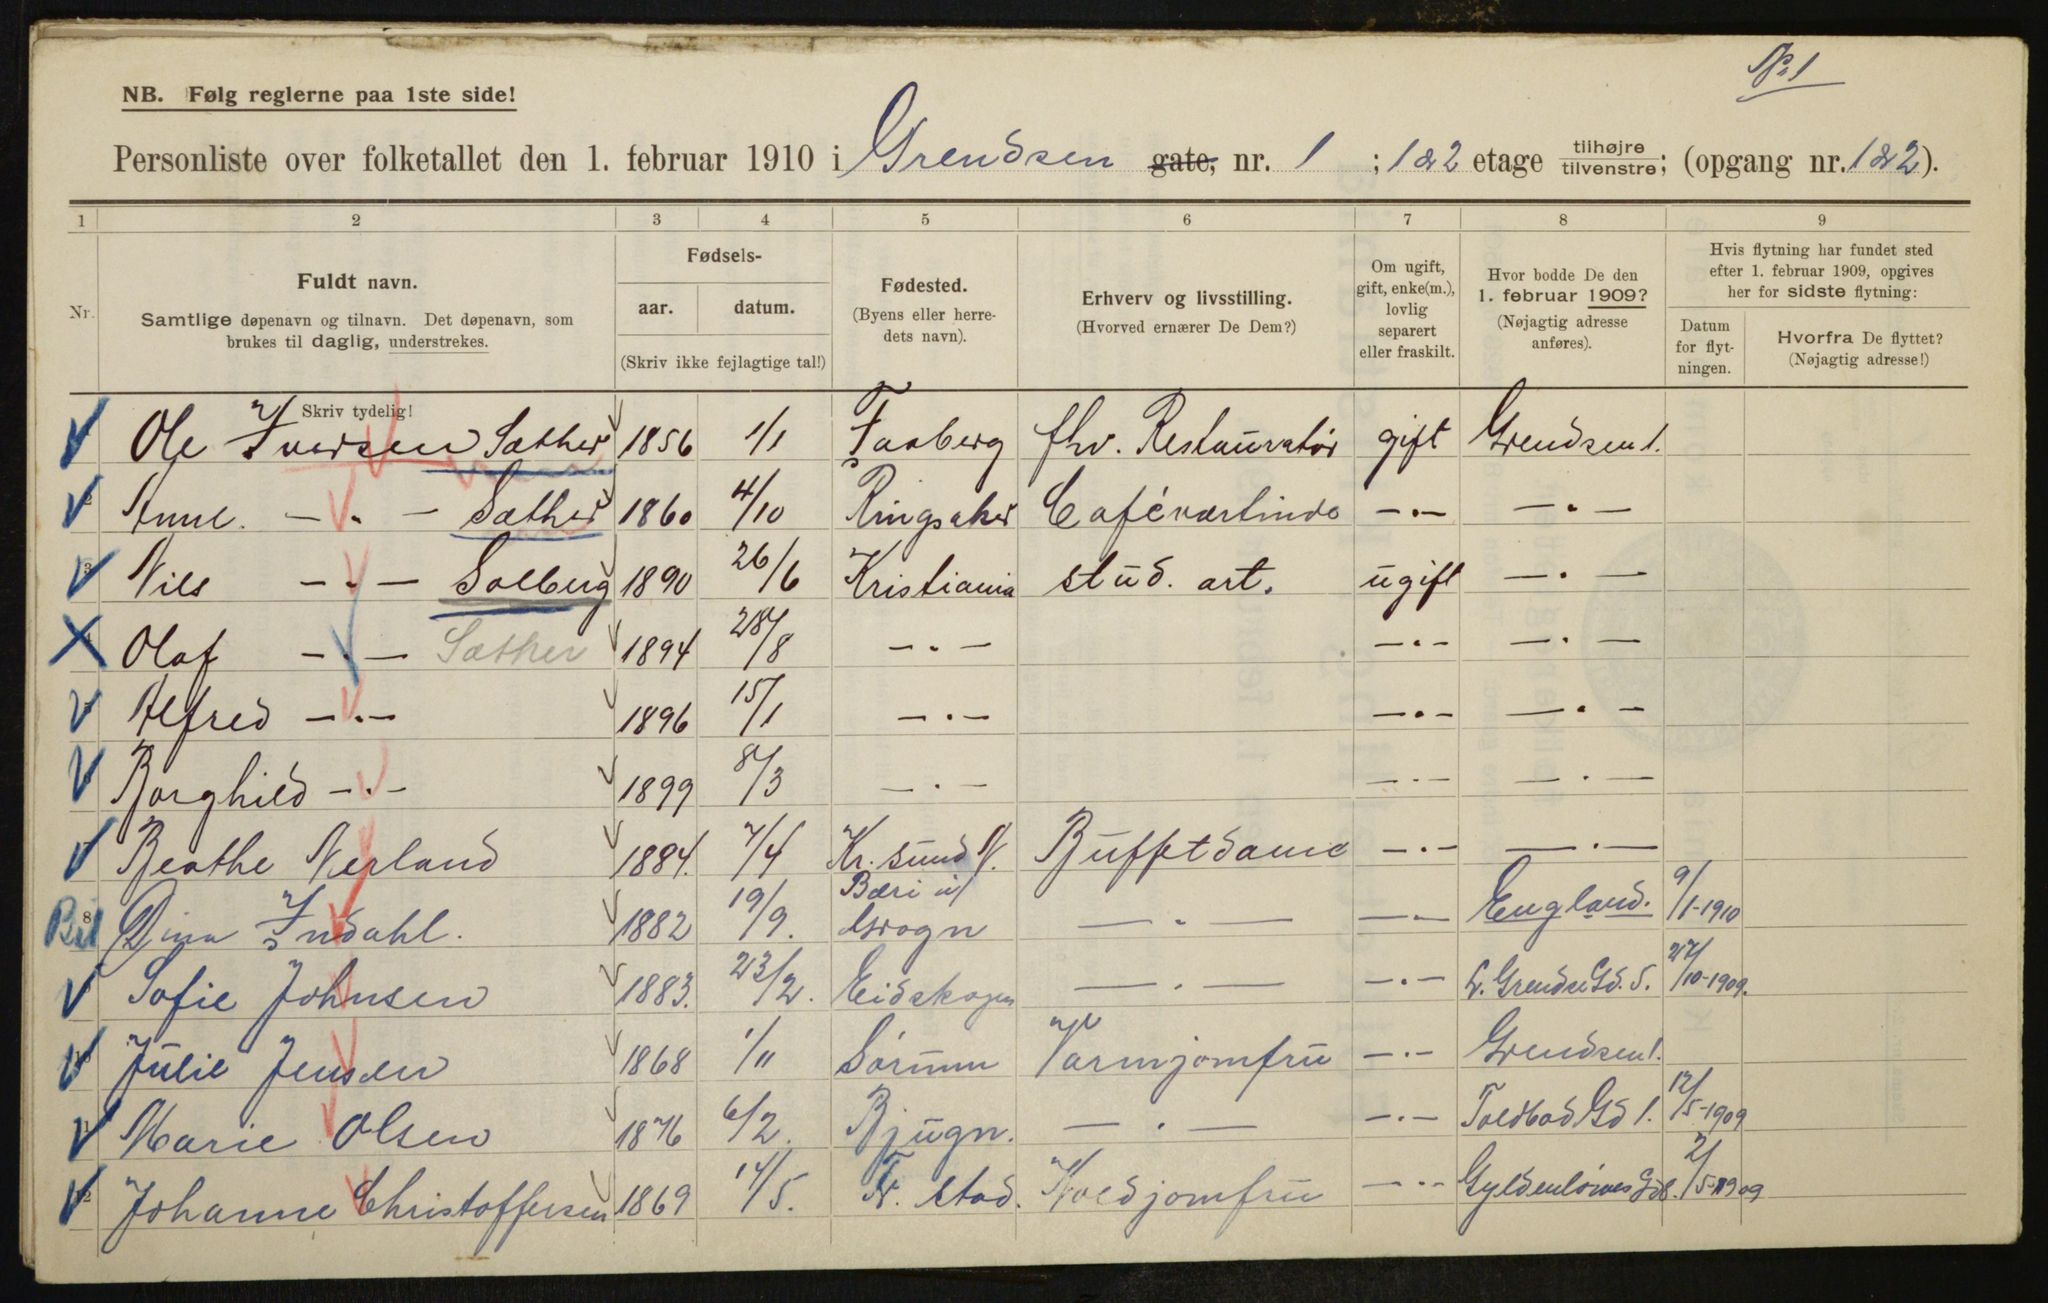 No 1
NB. Følg reglerne paa 1ste side!
Personliste over folketallet den 1. februar 1910 i Grendsen gate, nr. 1 ; 1 & 2 etage tilhøjre / tilvenstre; (opgang nr. 1 & 2).
1 2 3 4 5 6 7 8 9
Nr.
Fuldt navn.
Samtlige døpenavn og tilnavn. Det døpenavn, som
brukes til daglig, understrekes.
Skriv tydelig!
Fødsels-
aar. datum.
(Skriv ikke fejlagtige tal!)
Fødested.
(Byens eller herre-
dets navn).
Erhverv og livsstilling.
(Hvorved ernærer De Dem?)
Om ugift,
gift, enke(m.),
lovlig
separert
eller fraskilt.
Hvor bodde De den
1. februar 1909?
(Nøjagtig adresse
anføres).
Hvis flytning har fundet sted
efter 1. februar 1909, opgives
her for sidste flytning:
Datum
for flyt-
ningen.
Hvorfra De flyttet?
(Nøjagtig adresse!)
Ole Iversen Sæther 1856 1/1 Faaberg fhv. Restauratør gift Grendsen 1.
2 Anne. — . — Sæther 1860 4/10 Ringsaker Caféværtinde — . — — . —
3 Nils — . — Solberg 1890 26/6 Kristiania stud. art. ugift — . —
Olaf — . — Sæther 1894 28/8 — . — — . — — . —
Alfred — . — 1896 15/1 — . — — . — — . —
Borghild — . — 1899 8/3 — . — — . — — . —
Beathe Nerland 1884. 7/4 Kr. sund N. Buffetdame — . — — . —
8 Dina Indahl. 1882 19/9. — . — — . — England. 9/1-1910
Sofie Johnsen 1883. 23/2. Eidskogen — . — — . — L. Grendse Gd. 5. 27/10-1909.
10 Julie Jensen 1868 1/11 Sørum Varmjomfru — . — Grendsen 1.
11 Marie Olsen 1876 6/2. Bjugn. — . — — . — Toldbod Gd 1. 12/5-1909
12 Johanne Christoffersen 1869 14/5. Fr. stad. Koldjomfru — . — Gyldenløves Gd 8. 2/5-1909